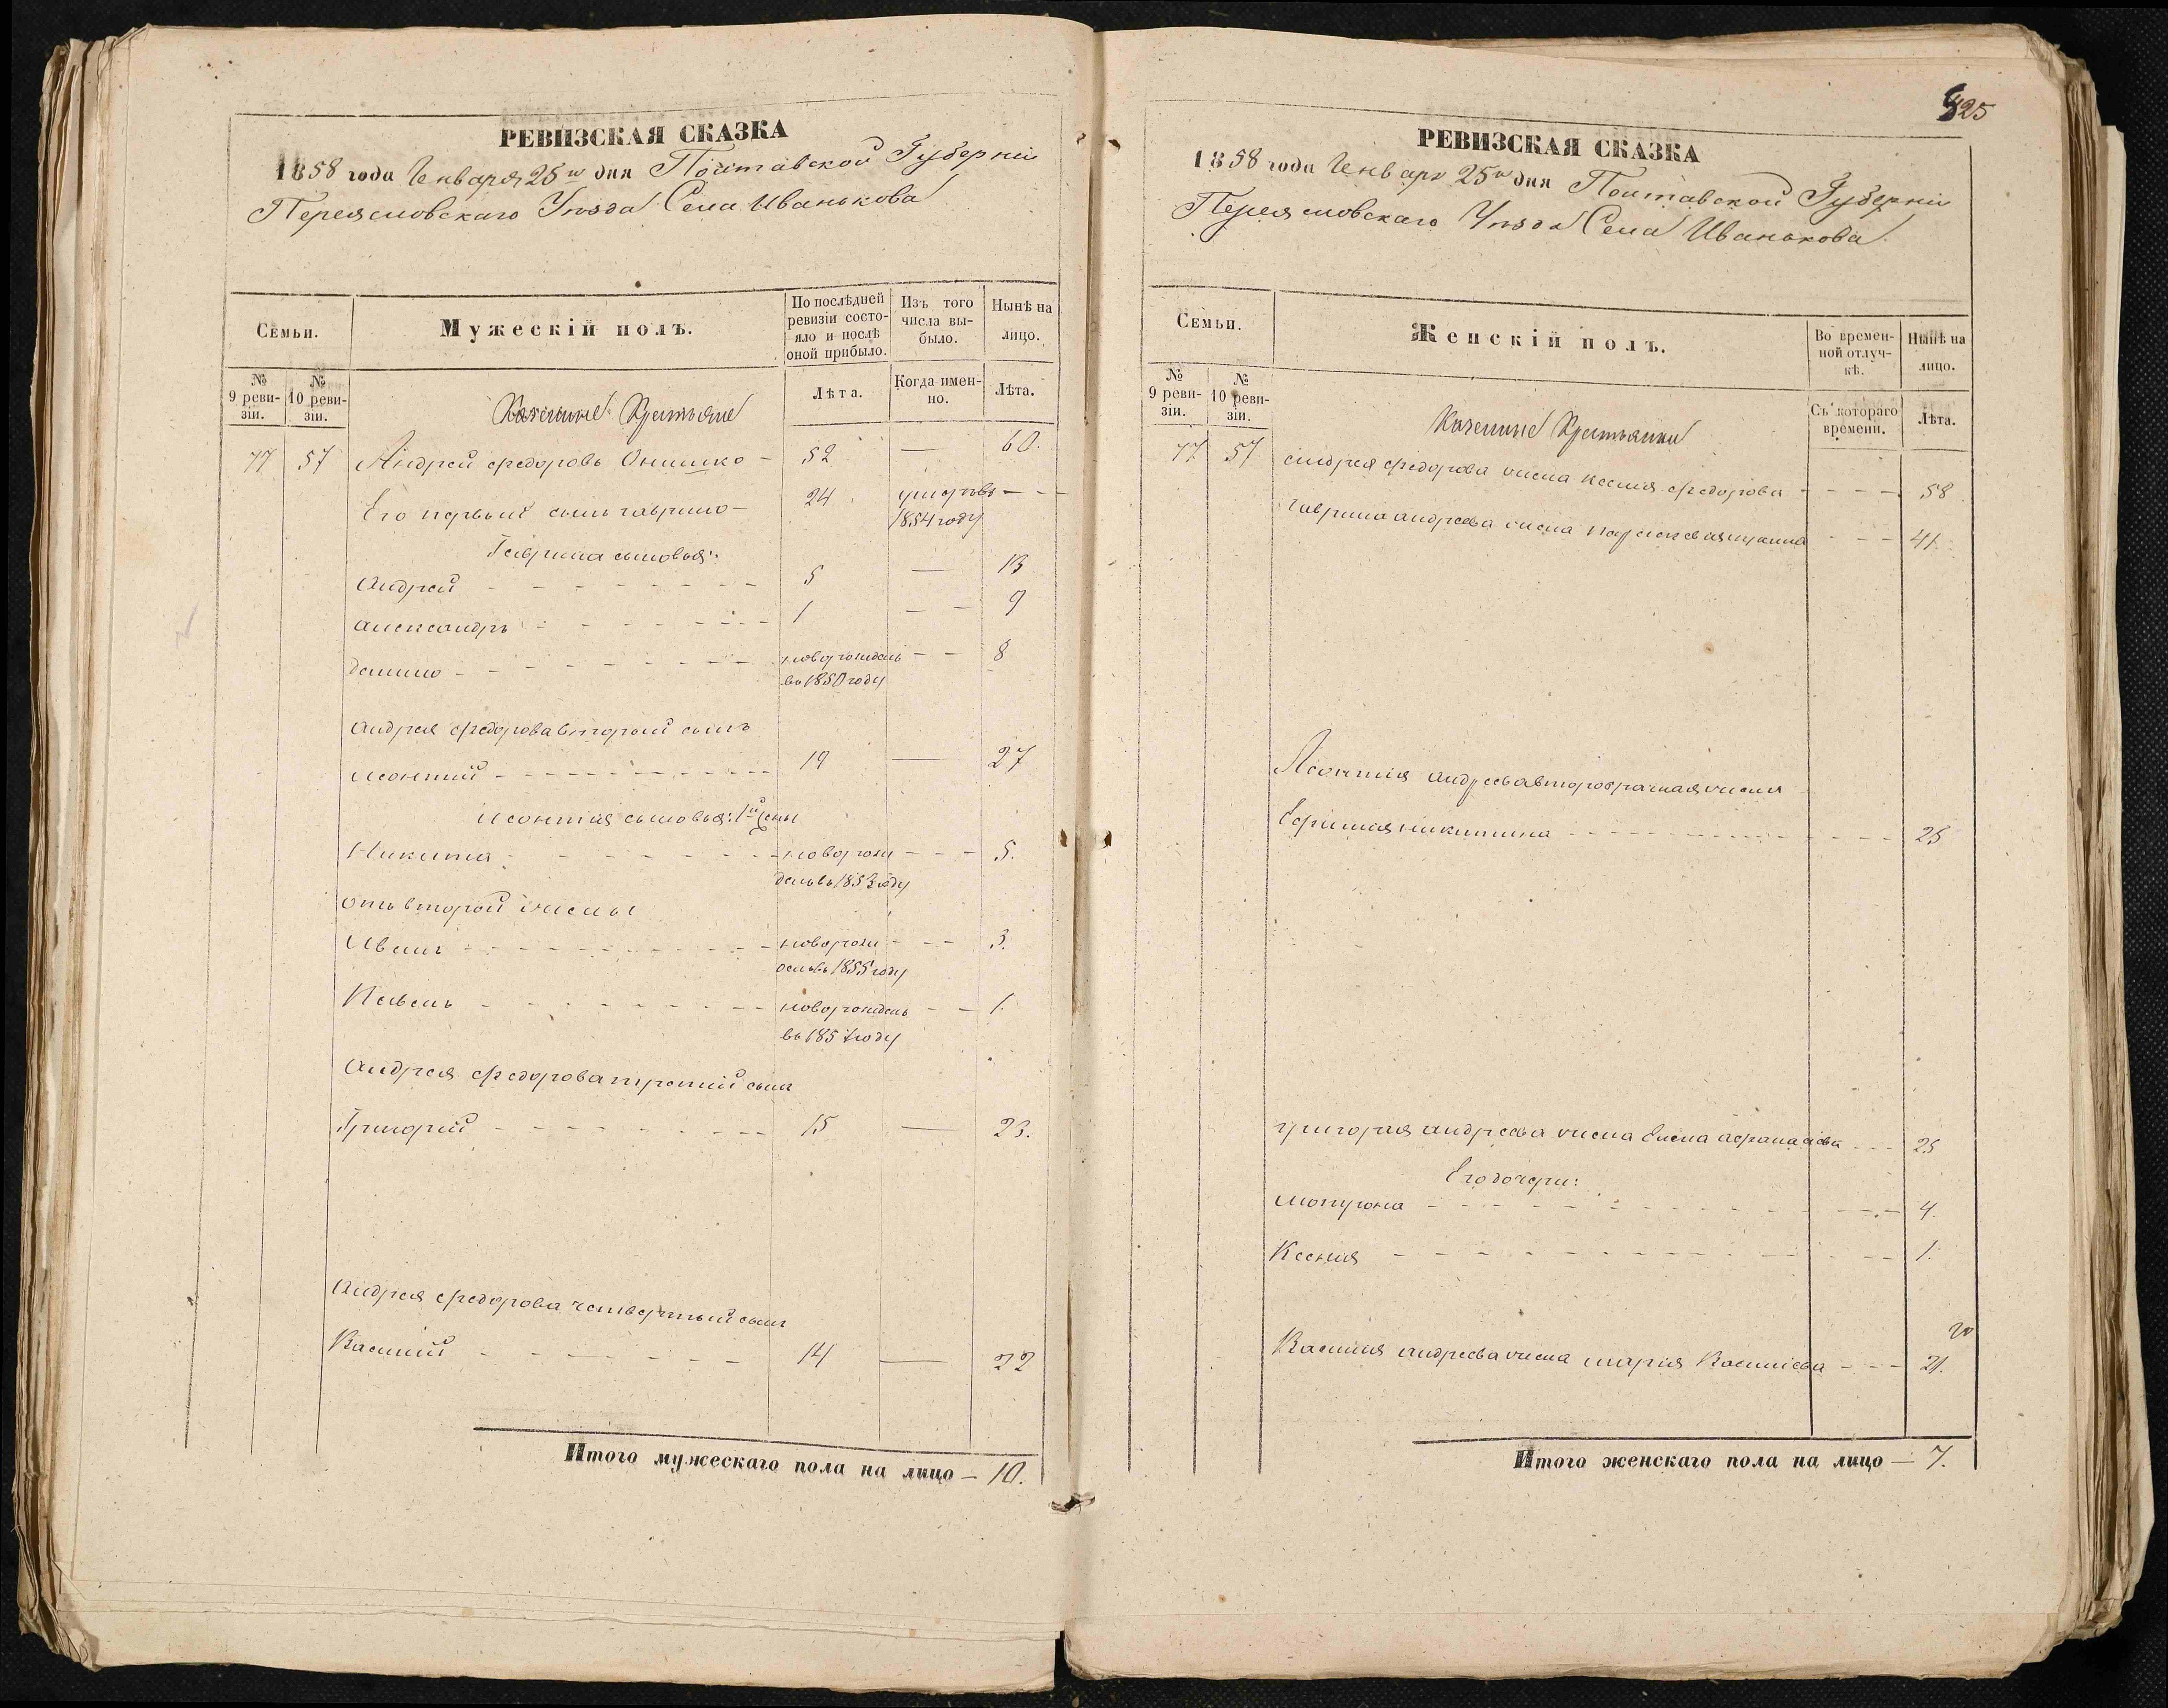 РЕВИЗСКАЯ СКАЗКА
1858 года Генваря 25 го дня Полтавской Губерніи
Переяславскаго Уѣзда Села Иванькова
Семьи.
Мужескій полъ.
По послѣдней ревизіи состояло и послѣ оной прибыло.
Изъ того числа выбыло.
Нынѣ на лицо.
№ 9 ревизіи.
№ 10 ревизіи.
Лѣта.
Когда именно.
Лѣта.
Казенные Крестьяне
77 57 Андрей Федоровъ Онишко - 52 — 60.
Его первый сынъ Гаврило - 24 умеръ въ - -
1854 году
Гаврила сыновья:
Андрей - - - 5 — 13
Александръ - - - 1 — - 9
Данило - - - новорожденъ - - 8
въ 1850 году
Андрея Федорова второй сынъ
Леонтий - - - 19 — 27
Леонтия сыновья: 1й жены
Никита - - - новорож - - 5.
денъ въ 1853 году
отъ второй жены
Иванъ - - - новорож - - 3.
денъ въ 1855 году
Павелъ - - - новорожденъ - - 1.
въ 1857 году
Андрея Федорова третий сынъ
Григорий - - - 15 — 23.
Андрея Федорова четвертый сынъ
Касиний - - - 14 — 22
Итого мужескаго пола на лицо — 10.
825
РЕВИЗСКАЯ СКАЗКА
1858 года Генваря 25 го дня Полтавской Губерніи
Переяславскаго Уѣзда Села Иванькова
Семьи.
Женскій полъ.
Во временной отлучкѣ.
Нынѣ на лицо.
№ 9 ревизіи.
№ 10 ревизіи.
Съ котораго времени.
Лѣта.
Казенные Крестьянки
77 57 Андрея Федорова жена Ксения Федорова - - - 58
Гаврила Андреева жена Параскевия - - - 41.
Леонтия Андреева второбрачная жена
Ефимия Никитина - - - 25
Григория Андреева жена Елена Афанасіева - - - 25
Его дочери:
Мотрона - - - 4.
Ксения - - - 1.
20
Касиния Андреева жена Мария Касиніева - - - 21.
Итого женскаго пола на лицо — 7.